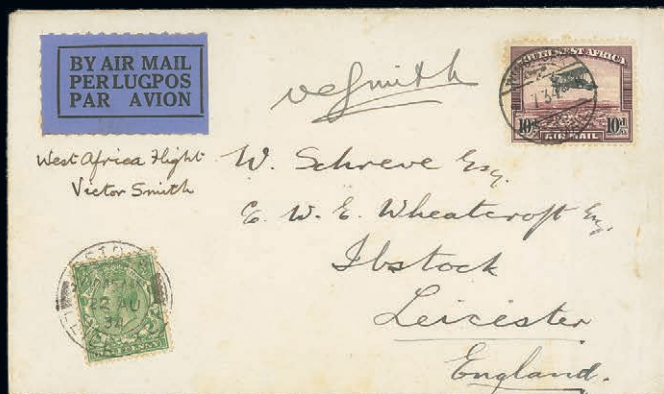 BY AIR MAIL
PER LUGPOS
PAR AVION
West Africa Flight
Victor Smith
VC Smith
SOUTH WEST AFRICA
10d 10d
AIR MAIL
W. Schreve Esq.
C. W. E. Wheatcroft Esq,
Ibstock
Leicester
England.
34